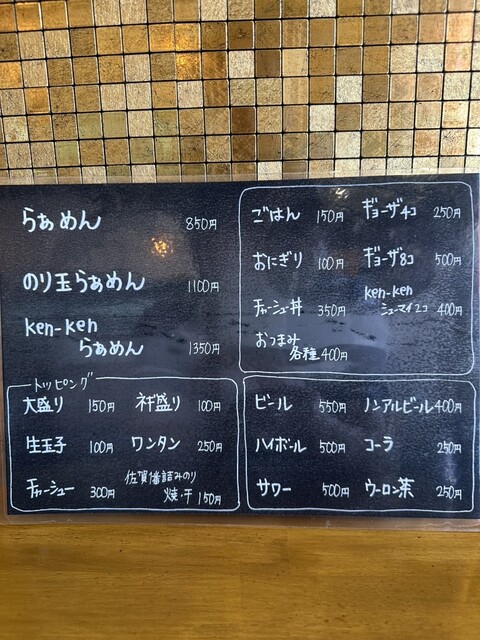 らぁめん 850円
のり玉らぁめん 1100円
ken-ken
らぁめん 1350円
ごはん 150円 ギョーザ4コ 250円
おにぎり 100円 ギョーザ8コ 500円
チャーシュー丼 350円 ken-ken
シューマイ2コ 400円
おつまみ
各種400円
トッピング
大盛り 150円 ネギ盛り 100円
生玉子 100円 ワンタン 250円
チャーシュー 300円 佐賀播詰みのり
焼・干 150円
ビール 550円 ノンアルビール400円
ハイボール 500円 コーラ 250円
サワー 500円 ウーロン茶 250円